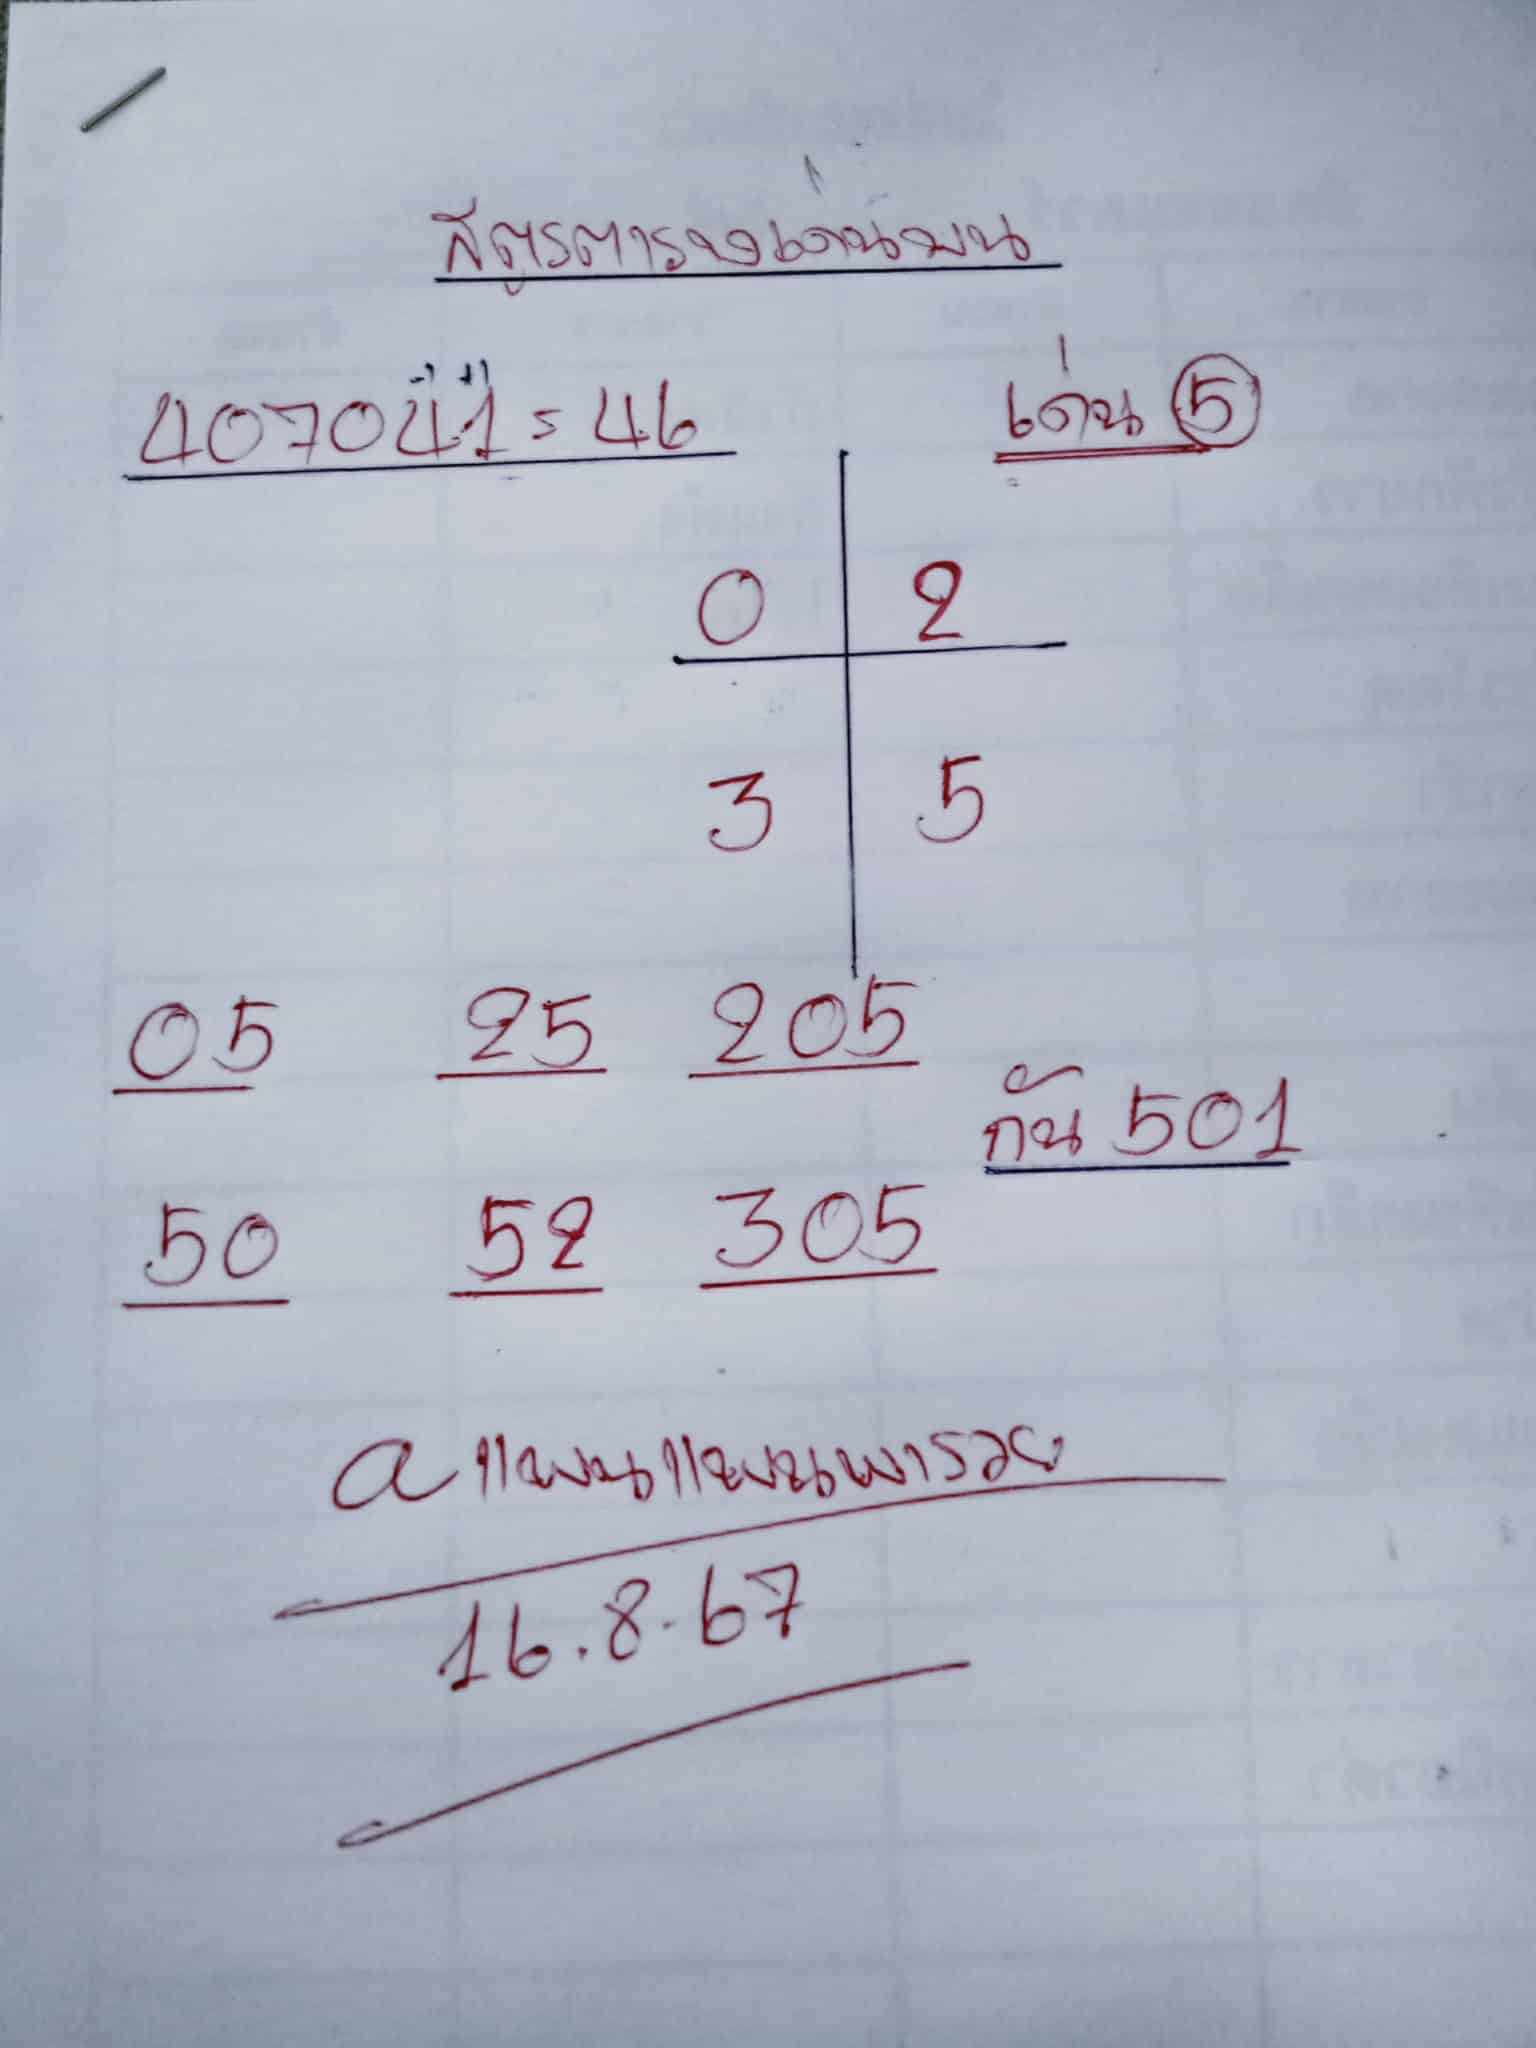 สูตรตารางเด่นบน
407041 = 46
เด่น 5
0 2
3 5
05 25 205
กัน 501
50 52 305
a แฟนแฟนพารวย
16.8.67